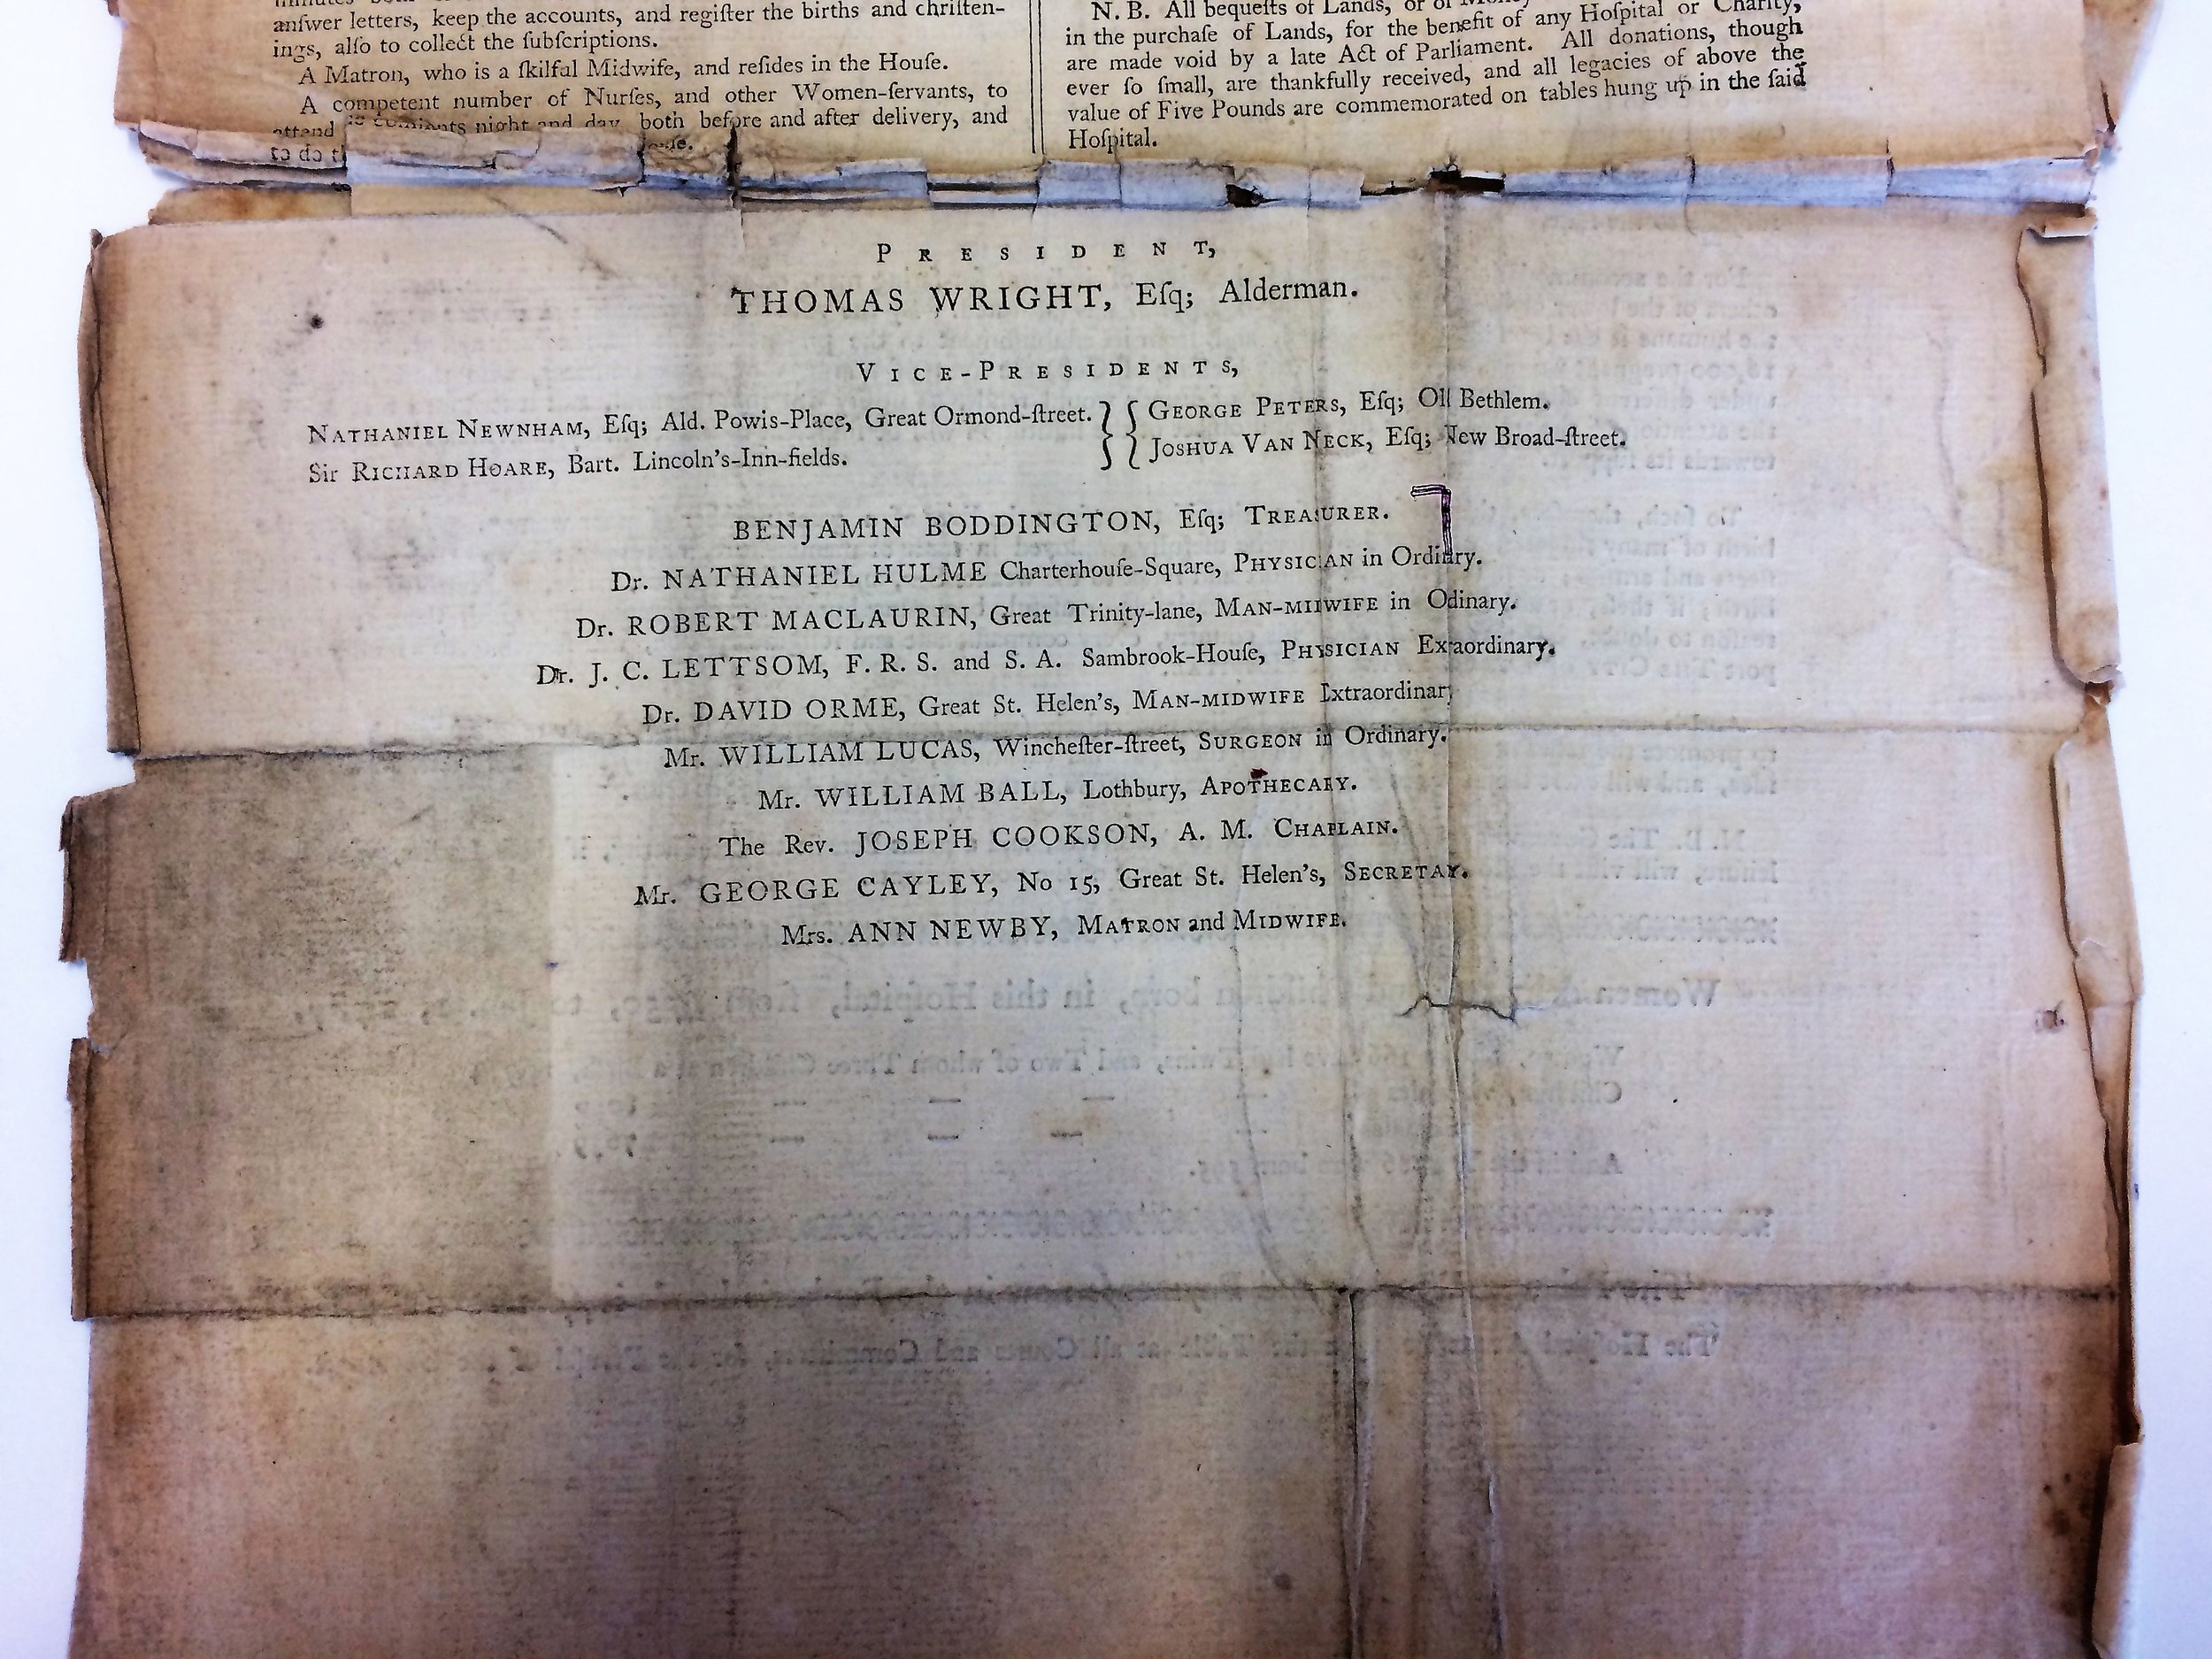 anſwer letters, keep the accounts, and regiſter the births and chriſten-
ings, alſo to collect the ſubſcriptions.
A Matron, who is a ſkilful Midwife, and reſides in the Houſe.
A competent number of Nurſes, and other Women-ſervants, to
attend night and day, both before and after delivery, and
to do
N. B. All bequeſts of Lands, or of
in the purchaſe of Lands, for the benefit of any Hoſpital or Charity,
are made void by a late Act of Parliament. All donations, though
ever ſo ſmall, are thankfully received, and all legacies of above the
value of Five Pounds are commemorated on tables hung up in the ſaid
Hoſpital.
PRESIDENT,
THOMAS WRIGHT, Eſq; Alderman.
VICE-PRESIDENTS,
NATHANIEL NEWNHAM, Eſq; Ald. Powis-Place, Great Ormond-ſtreet. } { GEORGE PETERS, Eſq; Old Bethlem.
Sir RICHARD HOARE, Bart. Lincoln's-Inn-fields. JOSHUA VAN NECK, Eſq; New Broad-ſtreet.
BENJAMIN BODDINGTON, Eſq; TREASURER.
Dr. NATHANIEL HULME Charterhouſe-Square, PHYSICIAN in Ordinary.
Dr. ROBERT MACLAURIN, Great Trinity-lane, MAN-MIDWIFE in Ordinary.
Dr. J. C. LETTSOM, F. R. S. and S. A. Sambrook-Houſe, PHYSICIAN Extraordinary.
Dr. DAVID ORME, Great St. Helen's, MAN-MIDWIFE Extraordinary
Mr. WILLIAM LUCAS, Wincheſter-ſtreet, SURGEON in Ordinary.
Mr. WILLIAM BALL, Lothbury, APOTHECARY.
The Rev. JOSEPH COOKSON, A. M. CHAPLAIN.
Mr. GEORGE CAYLEY, No 15, Great St. Helen's, SECRETARY.
Mrs. ANN NEWBY, MATRON and MIDWIFE.